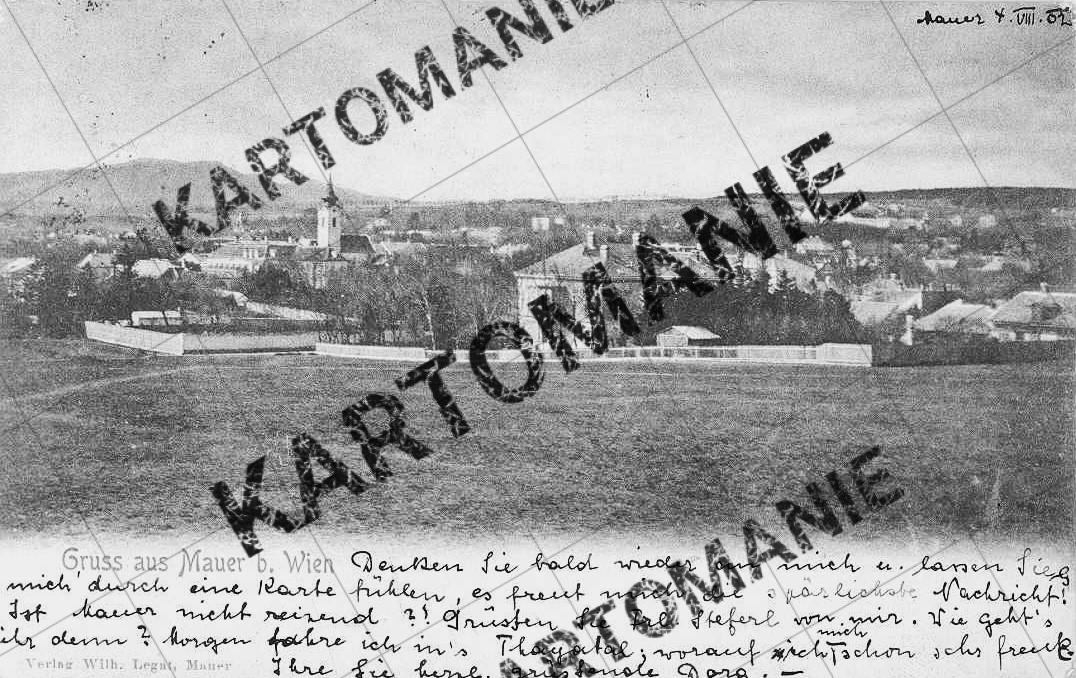 Mauer 4. VIII. 02
KARTOMANIE
KARTOMANIE
KARTOMANIE
Gruss aus Mauer b. Wien
Denken Sie bald wieder an mich u. lassen Sie es
mich durch eine Karte fühlen, es freut mich die spärlichste Nachricht!
Ist Mauer nicht reizend ?! Grüssen Sie Frl. Steferl von mir. Wie geht's
ihr denn? Morgen fahre ich in's Thayatal; worauf ich mich schon sehr freue.
Verlag Wilh. Legat, Mauer
Ihre Sie herzl. grüssende Dora. –